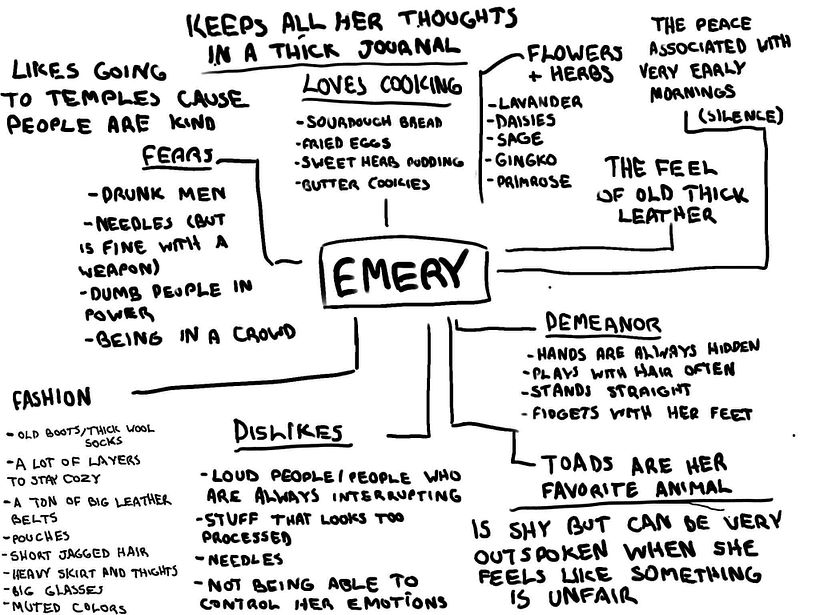 KEEPS ALL HER THOUGHTS
IN A THICK JOURNAL
LIKES GOING
TO TEMPLES CAUSE
PEOPLE ARE KIND
LOVES COOKING
-SOURDOUGH BREAD
-FRIED EGGS
-SWEET HERB PUDDING
-BUTTER COOKIES
FLOWERS
+ HERBS
-LAVANDER
-DAISIES
-SAGE
-GINGKO
-PRIMROSE
THE PEACE
ASSOCIATED WITH
VERY EARLY
MORNINGS
(SILENCE)
THE FEEL
OF OLD THICK
LEATHER
FEARS
-DRUNK MEN
-NEEDLES (BUT
IS FINE WITH A
WEAPON)
-DUMB PEOPLE IN
POWER
-BEING IN A CROWD
EMERY
DEMEANOR
-HANDS ARE ALWAYS HIDDEN
-PLAYS WITH HAIR OFTEN
-STANDS STRAIGHT
-FIDGETS WITH HER FEET
FASHION
-OLD BOOTS/THICK WOOL
SOCKS
-A LOT OF LAYERS
TO STAY COZY
-A TON OF BIG LEATHER
BELTS
-POUCHES
-SHORT JAGGED HAIR
-HEAVY SKIRT AND THIGHTS
-BIG GLASSES
-MUTED COLORS
DISLIKES
-LOUD PEOPLE/PEOPLE WHO
ARE ALWAYS INTERRUPTING
-STUFF THAT LOOKS TOO
PROCESSED
-NEEDLES
-NOT BEING ABLE TO
CONTROL HER EMOTIONS
TOADS ARE HER
FAVORITE ANIMAL
IS SHY BUT CAN BE VERY
OUTSPOKEN WHEN SHE
FEELS LIKE SOMETHING
IS UNFAIR